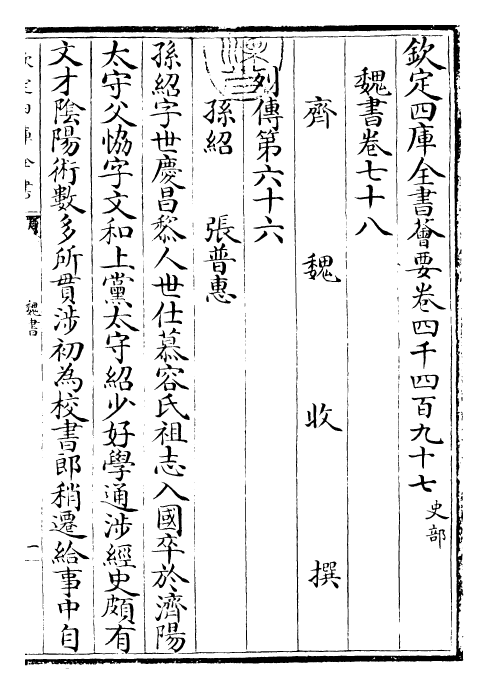 欽定四庫全書薈要卷四千四百九十七 史部
魏書卷七十八
齊 魏 收 撰
列傳第六十六
孫紹 張普惠
孫紹字世慶昌黎人世仕慕容氏祖志入國卒於濟陽
太守父恊字文和上黨太守紹少好學通涉經史頗有
文才陰陽術數多所貫涉初為校書郎稍遷給事中自
欽定四庫全書
魏書
一